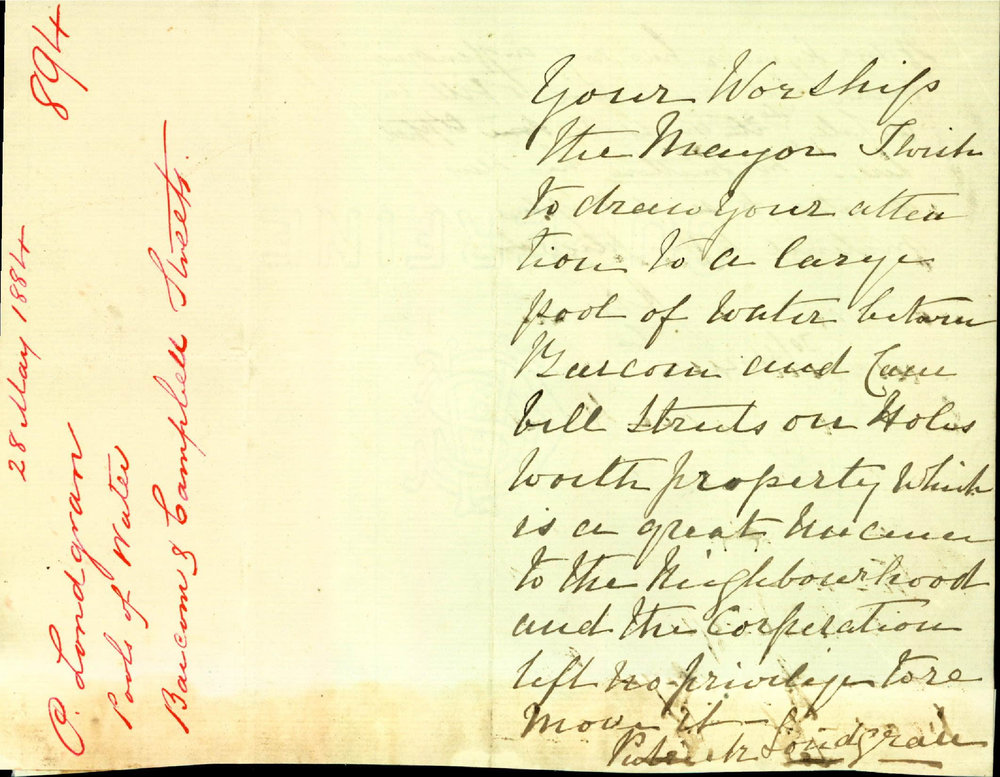 894
28 May 1884
P. Londgran
Pools of Water
Barcom & Campbell Streets.
Your Worship
the Mayor I wish
to draw your atten
tion to a large
pool of water between
Barcom and Cam
bell Streets on Holds
worth property which
is a great nucence
to the Nighbourhood
and the Corporation
left no privilige to re
move it
Patrick Londgran